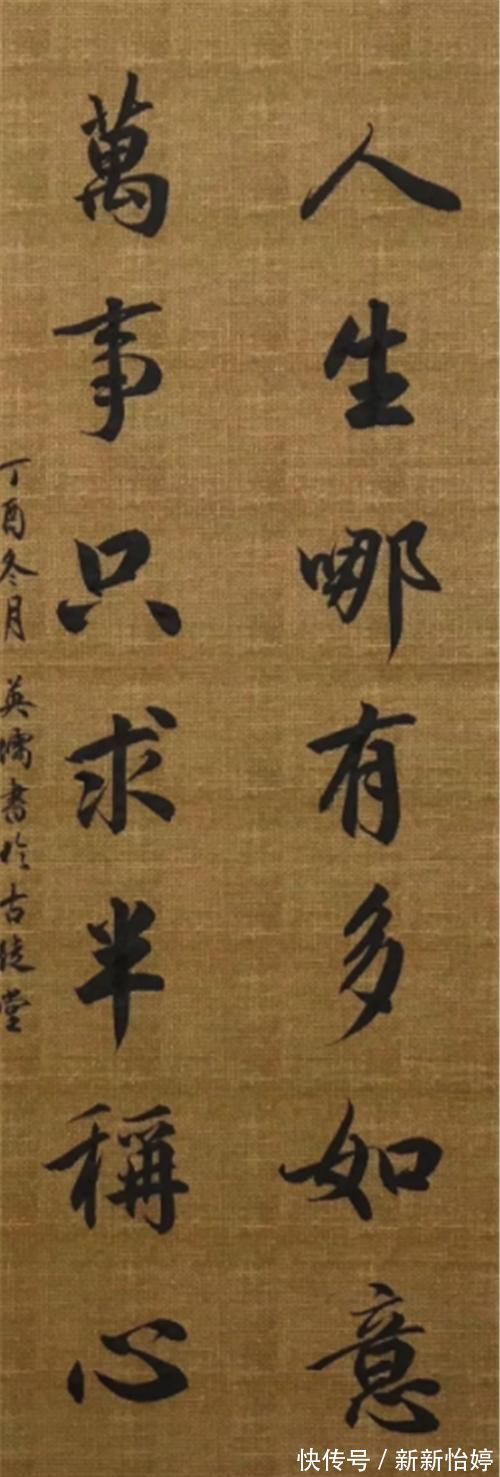 人生哪有多如意
萬事只求半稱心
丁酉冬月 英儒書於古陵堂
快传号 / 新新怡婷